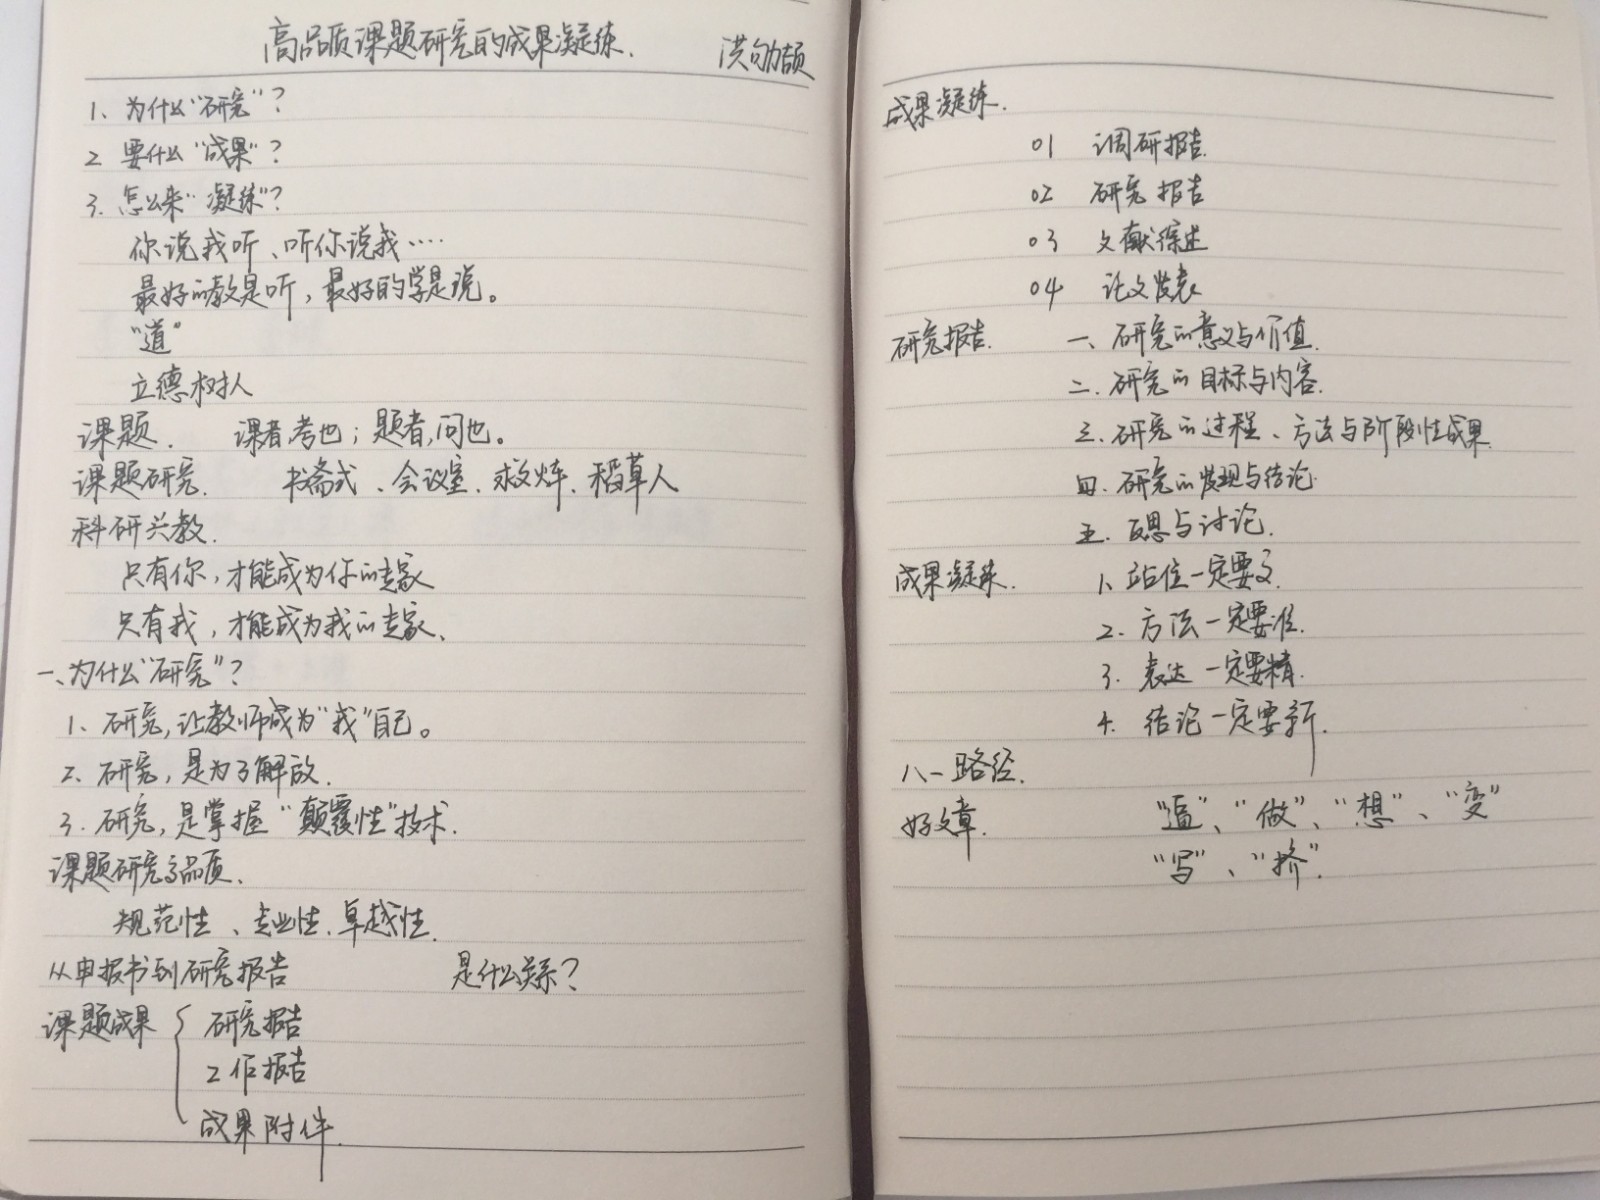 高品质课题研究的成果凝练. 洪劬颉
1、为什么“研究”？
2 要什么“成果”？
3. 怎么来“凝练”？
你说我听、听你说我····
最好的教是听，最好的学是说。
“道”
立德树人
课题. 课者,考也；题者,问也。
课题研究. 书斋式、会议室、救火阵、稻草人
科研兴教.
只有你，才能成为你的专家
只有我，才能成为我的专家、
一、为什么“研究”？
1、研究,让教师成为“我”自己。
2、研究，是为了解放.
3. 研究，是掌握“颠覆性”技术.
课题研究高品质、
规范性、专业性、卓越性.
从申报书到研究报告 是什么关系？
课题成果 研究报告
工作报告
成果附件.
成果凝练.
01 调研报告.
02 研究报告
03 文献综述
04 论文发表
研究报告. 一、研究的意义与价值.
二.研究的目标与内容.
三.研究的过程、方法与阶段性成果.
四.研究的发现与结论.
五.反思与讨论.
成果凝练. 1、站位一定要高.
2. 方法一定要准.
3. 表达一定要精.
4. 结论一定要新.
八一路径.
好文章. “逼”、“做”、“想”、“变”
“写”、“挤”.